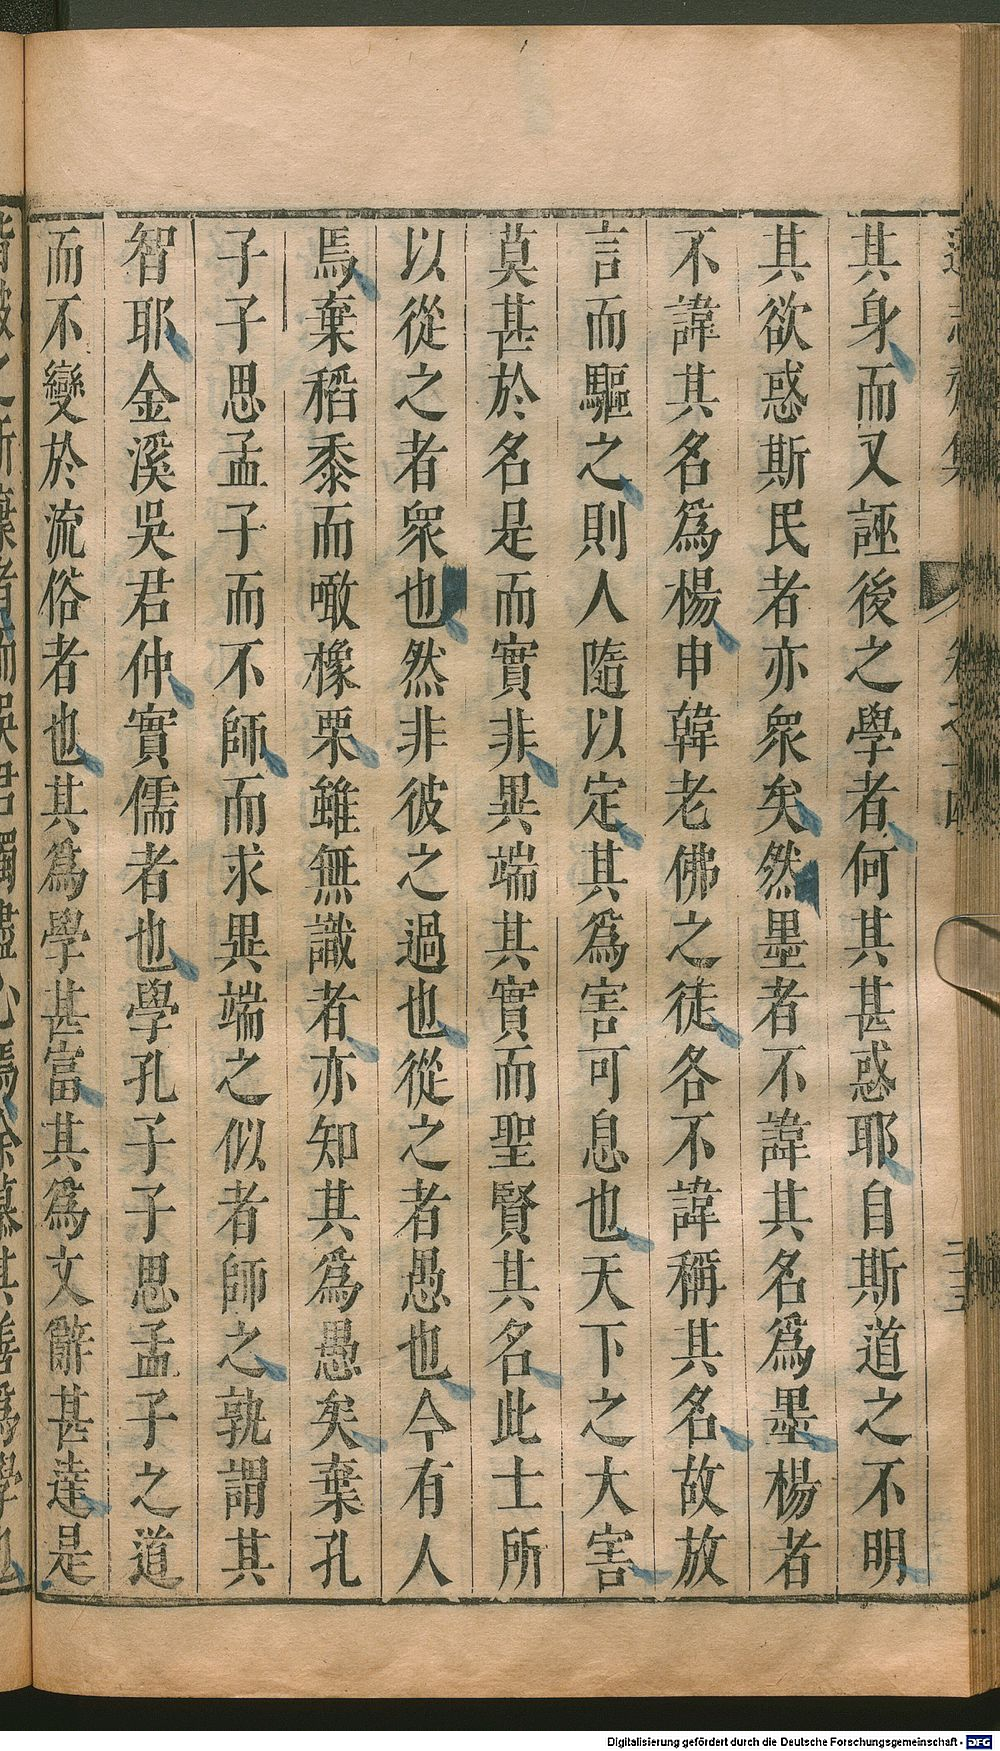 其身而又誣後之學者何其甚惑耶自斯道之不明
其欲惑斯民者亦衆矣然墨者不諱其名爲墨楊者
不諱其名爲楊申韓老佛之徒各不諱稱其名故放
言而驅之則人隨以定其爲害可息也天下之大害
莫甚於名是而實非異端其實而聖賢其名此士所
以從之者衆也然非彼之過也從之者愚也今有人
焉棄稻黍而噉橡栗雖無識者亦知其爲愚矣棄孔
子子思孟子而不師而求異端之似者師之孰謂其
智耶金溪吳君仲實儒者也學孔子子思孟子之道
而不變於流俗者也其爲學甚富其爲文辭甚達是
Digitalisierung gefördert durch die Deutsche Forschungsgemeinschaft - DFG